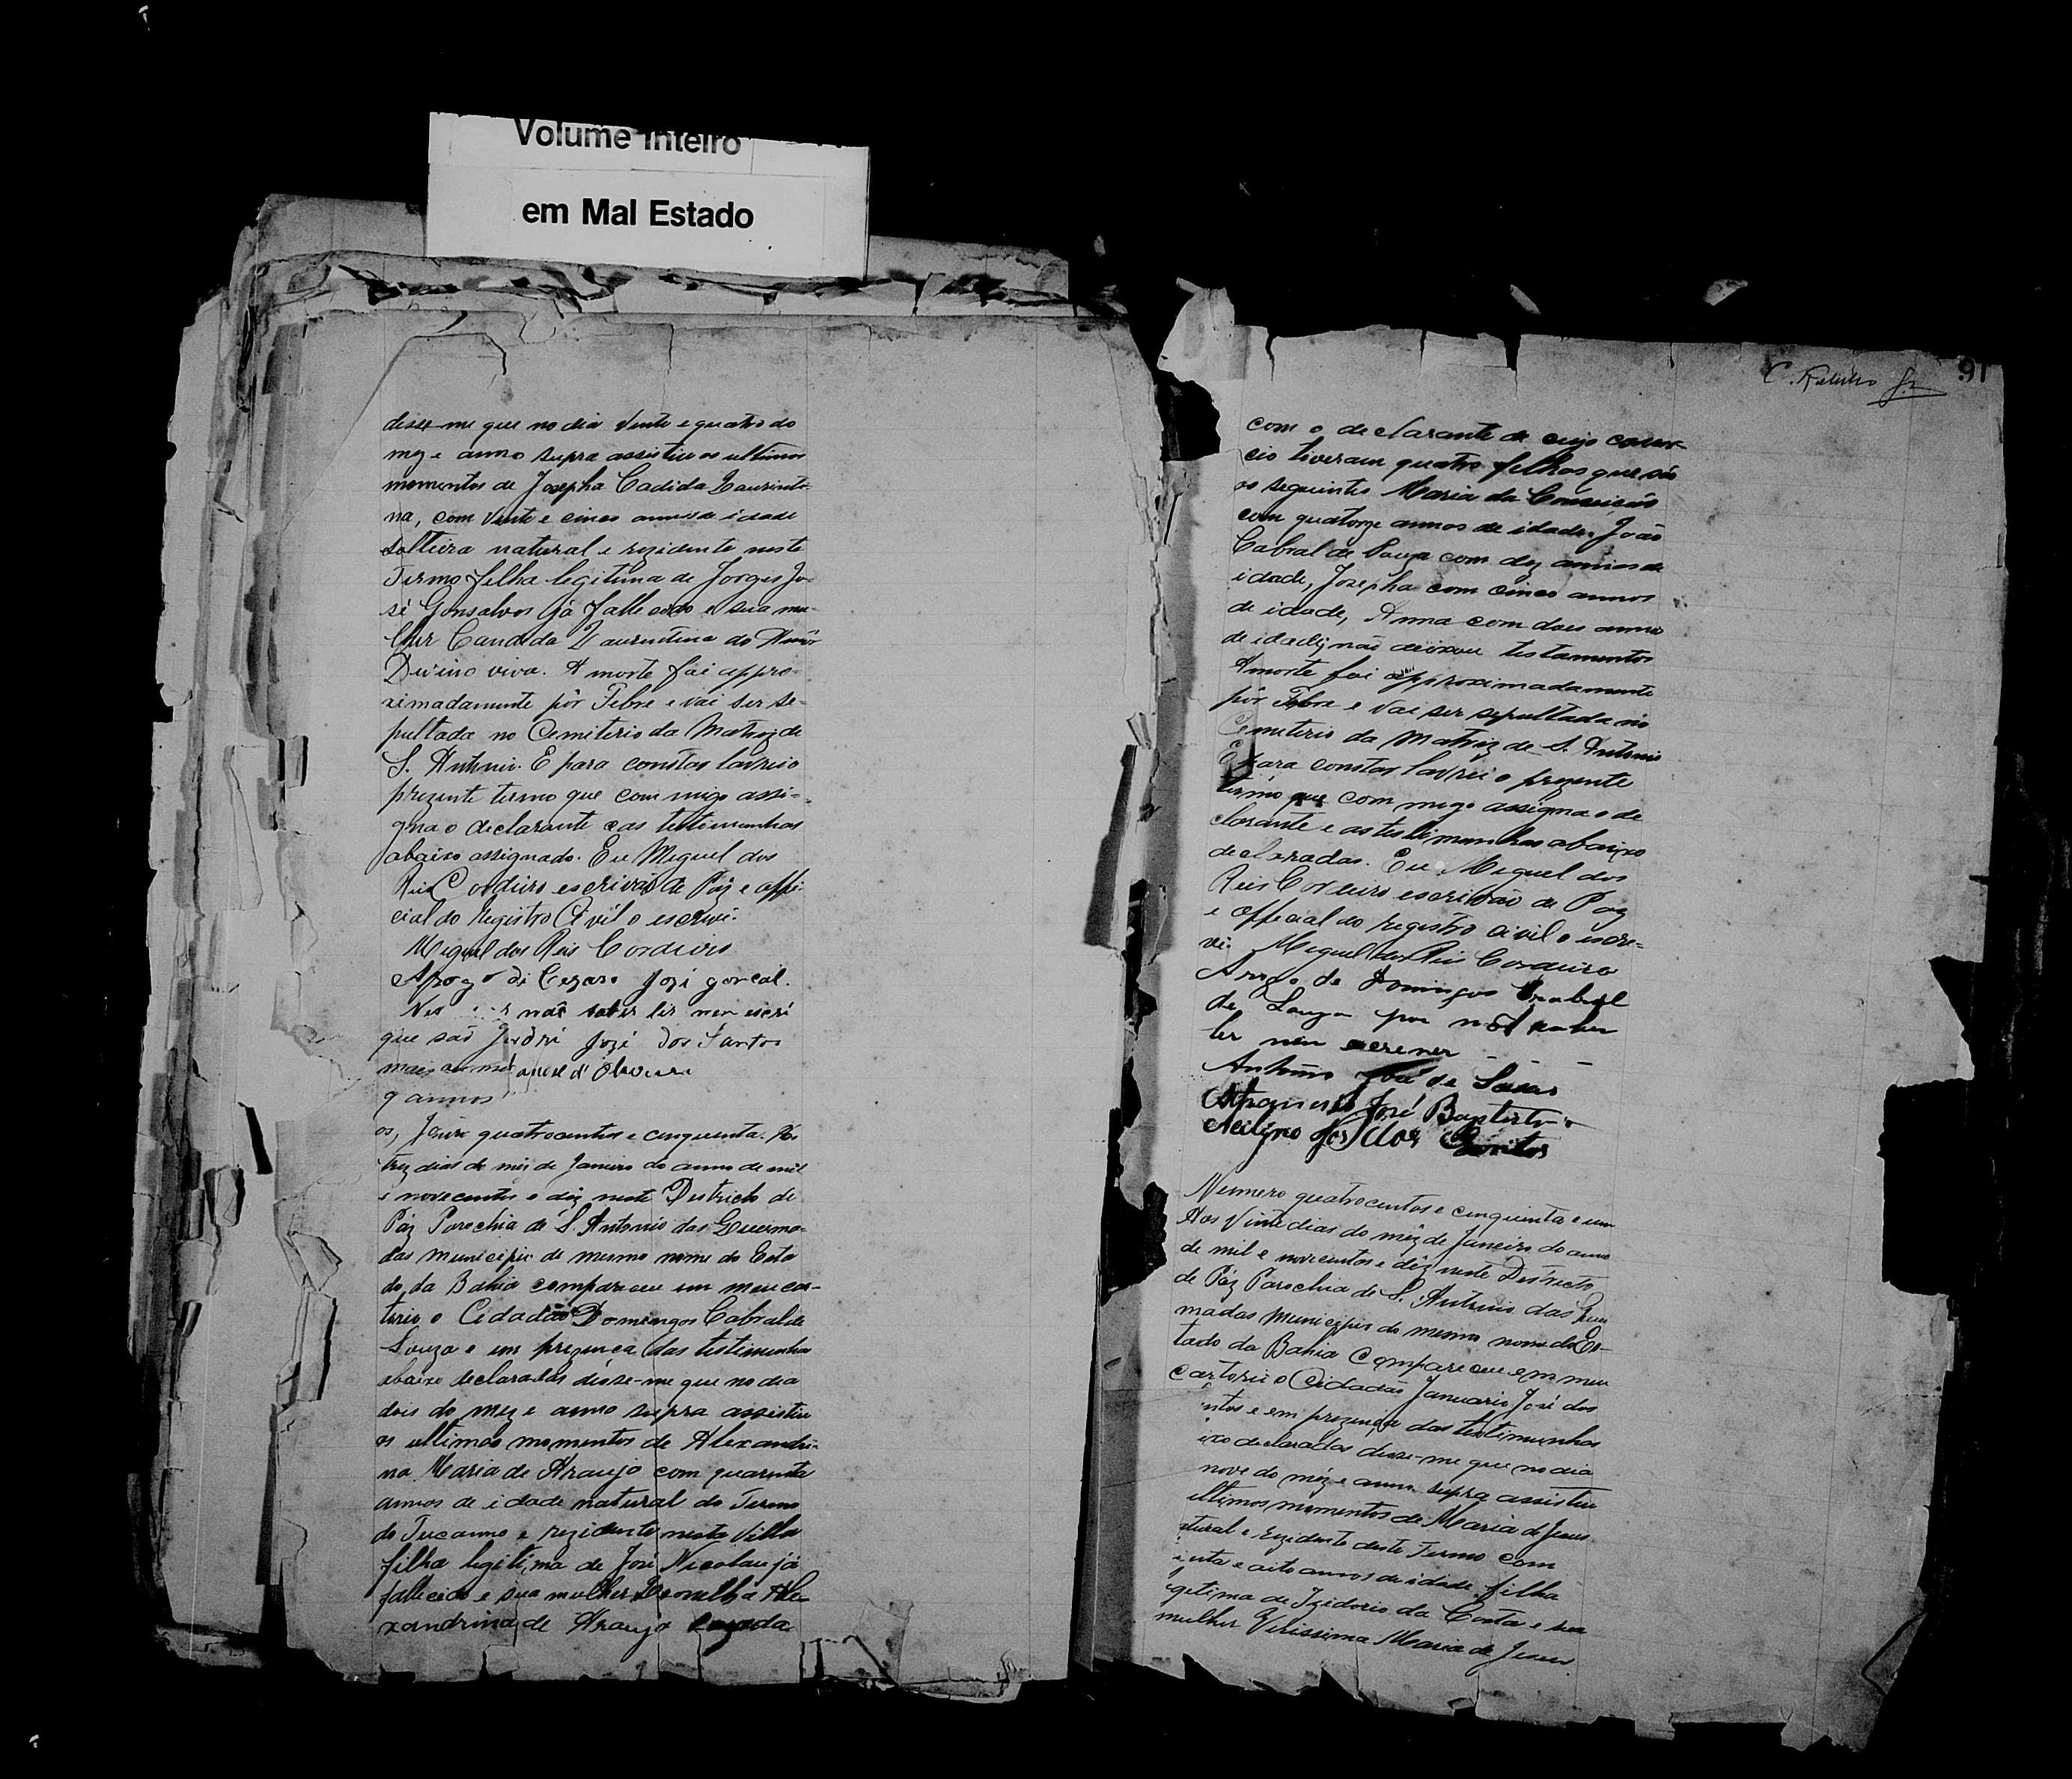 Volume Inteiro
em Mal Estado
disse-me que no dia Vente e quatro do
mez e anno supra assistiu os ultimos
momentos de Josepha Cadida Laurinti-
na, com Vente e cinco annos de idade
solteira natural e rezidente neste
Termo filha legitima de Jorges Jo-
sé Gonsalves já fallecido e sua mu-
lher Candida Laurentina do Amôr
Divino viva. A morte foi appro-
ximadamente pôr Febre e vai ser se-
pultada no Cemiterio da Matriz de
S. Antonio. E para constar lavrei o
prezente termo que com migo assi-
gna o declarante e as testemunhas
abaixo assignado. Eu Miguel dos
Reis Cordeiro escrivão de Páz e offi-
cial do Registro Civil o escrevi.
Miguel dos Reis Cordeiro
Arogo di Cezaro Jozé
não saber ler nem escri
que são José dos Santos
mais d'Oliveira
9 annos
os, quatrocentos e cinquenta. Aos
trez dias do mêz de Janeiro do anno de mil
e novecentos e diz neste Districto de
Páz Parochia de S. Antonio das Queima-
das municipio do mesmo nome do Esta
do da Bahia compareceu em meu car-
torio o Cidadão Domingos Cabral de
Souza e em prezença das testimunha
abaixo declaradas disse-me que no dia
dois do mez e anno supra assistiu
os ultimos momentos de Alexandri-
na Maria de Araujo com quarenta
annos de idade natural do Termo
do Tucanno e rezidente nesta Villa
filha legitima de José Nicolau já
fallecido e sua mulher Ale-
xandrina de Araujo cazada
C. Jr.
91
com o declarante de cujo consor-
cio tiveram quatro filhos que são
os seguintes Maria da Conceicão
com quatorze annos de idade. João
Cabral de Souza com dez annos de
idade, Josepha com cinco annos
de idade, Anna com dois annos
de idade; não deixou testamentos
A morte foi approximadamente
pôr Febre e vai ser sepultada no
Cemiterio da Matriz de S. Antonio
E para constar lavrei o prezente
termo que com migo assigna o de
clarante e as testimunhas abaixo
declaradas. Eu Miguel dos
Reis Cordeiro escrivão de Paz
e official do registro civil o escre-
vi. Miguel dos Reis Cordeiro
Arogo de Domingos Cabral
de Souza por não saber
ler nem escrever
Antonio José de
José Baptista
dos Santos
Numero quatrocentos e cinquenta e um
Aos Vinte dias do mêz de Janeiro do anno
de mil e novecentos e déz neste Districto
de Páz Parochia de S. Antonio das Quei
madas Municipio do mesmo nome do Es-
tado da Bahia Compareceu em meu
cartorio o Cidadão Januario José dos
ntos e em prezença das testimunhas
ixo declaradas disse-me que no dia
nove do mêz e anno supra assistiu
ultimos momentos de Maria de Jesus
atural e rezidente deste Termo com
enta e oito annos de idade filha
egitima de Izidorio da Costa e sua
mulher Virissima Maria de Jesus.